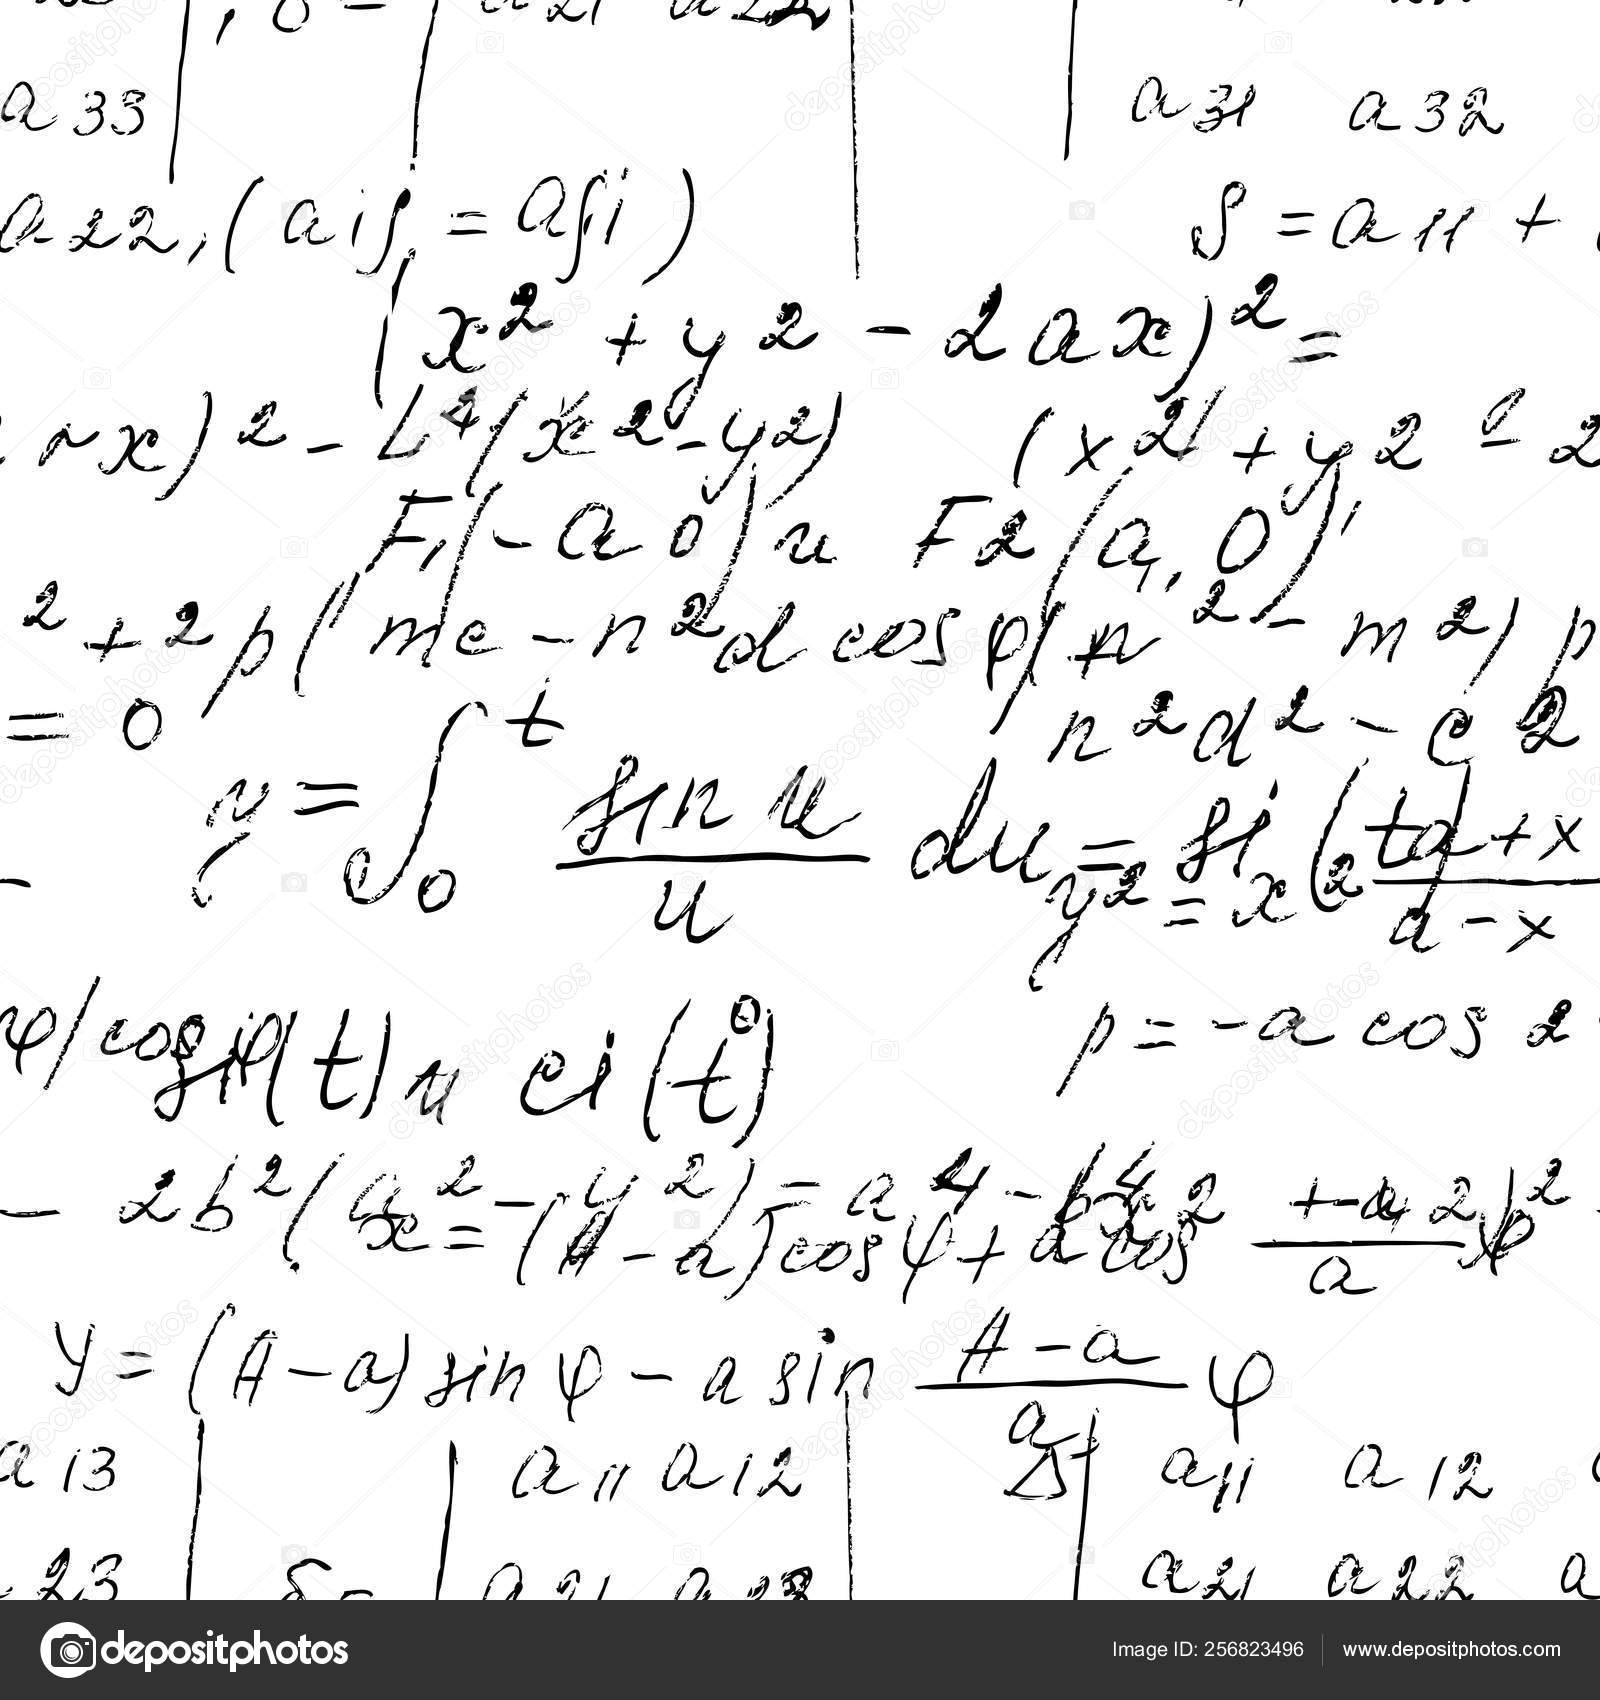 a 33 a 31 a 32
a 22, ( aij = aji ) S = a 11 +
( x² + y 2 - 2 a x )² =
x ) 2 - L⁴ ( x 2 - y 2 ) ( x 2 + y 2 - 2
F1 ( - a 0 ) и F2 ( a, 0 ) ,
2 + 2 p ( mc - n² d cos φ ) n 2 - m 2 ) p
= 0 n 2 d 2 - c 2
y = ∫₀ᵗ sin u / u du = si ( t ) a + x
y 2 = x 2 a - x
φ / cos φ si ( t ) и ci ( t ) p = - a cos 2
- 2 b 2 ( x 2 - y 2 ) = a 4 - b 4
x = ( A - a ) cos φ + a cos a φ
y = ( A - a ) sin φ - a sin A - a / a φ
a 13 a 11 a 12 Δ a 11 a 12
23 δ = a 21 a 22 a 21 a 22 a
depositphotos Image ID: 256823496 www.depositphotos.com